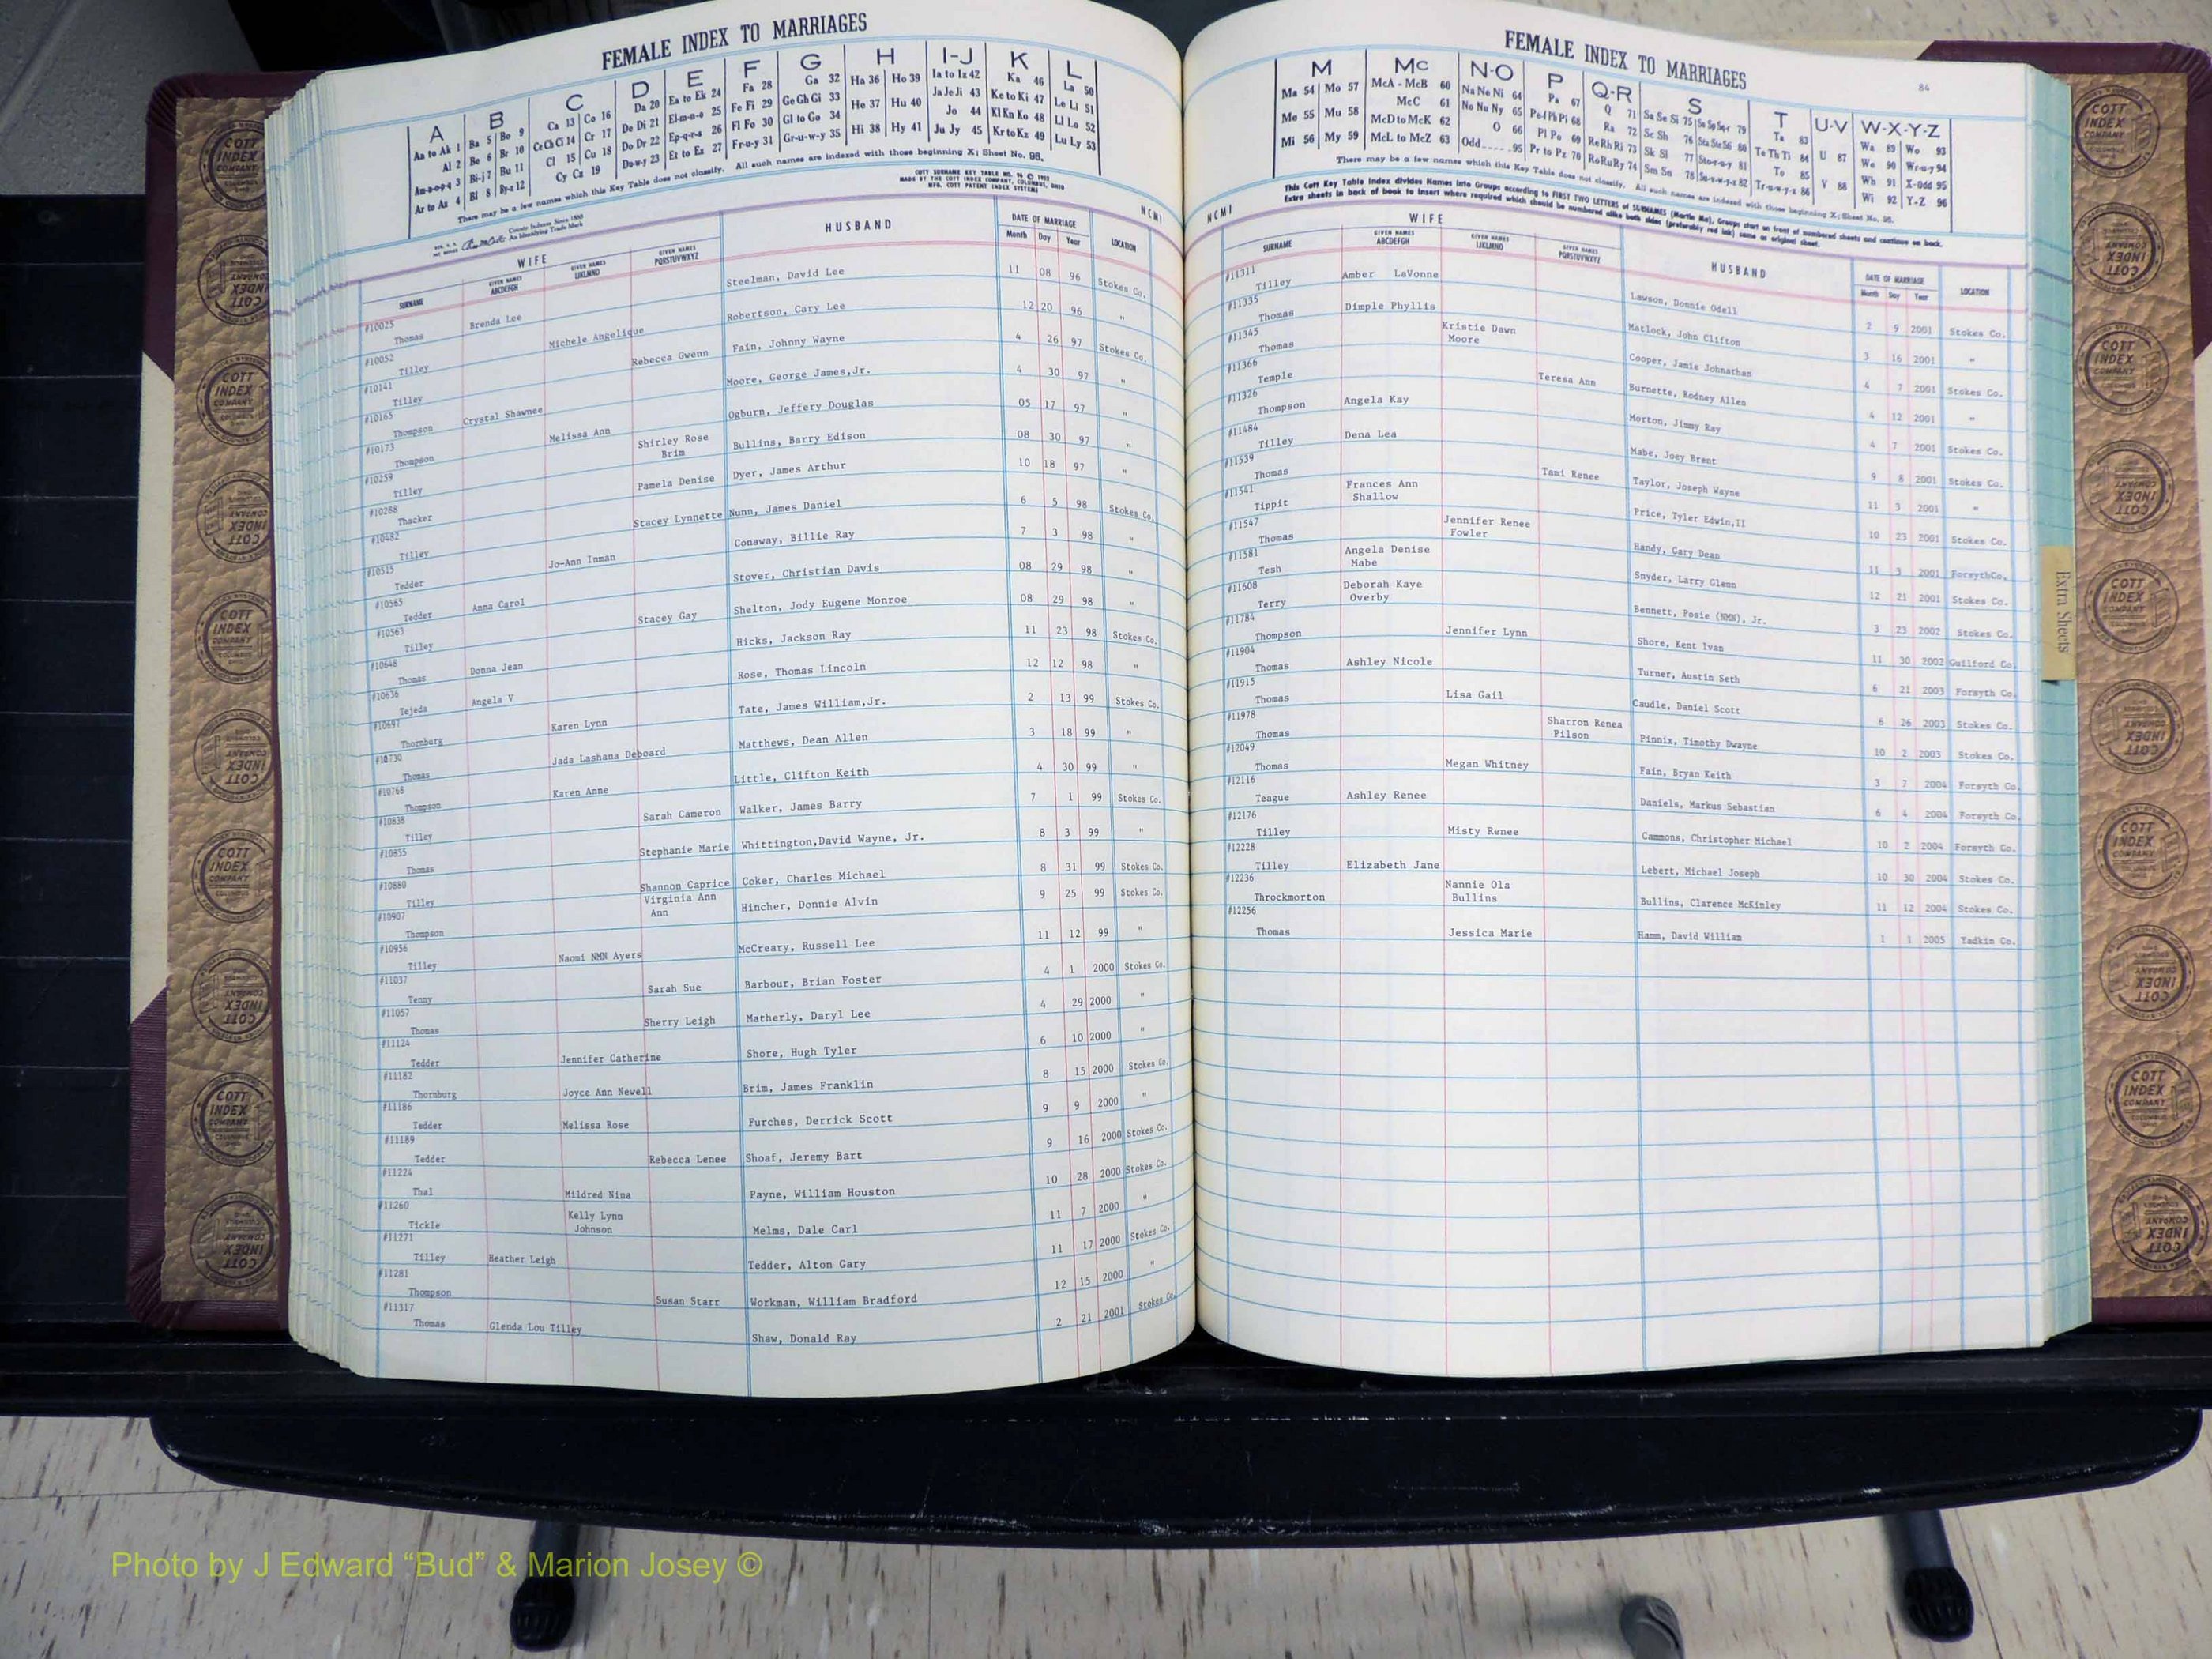 FEMALE INDEX TO MARRIAGES
A B C D E F G H I-J K L
Aa to Ak 1 Ba 5 Bo 9 Ca 13 Co 16 Da 20 Ea to Ek 24 Fa 28 Ga 32 Ha 36 Ho 39 Ia to Iz 42 Ka 46 La 50
Al 2 Be 6 Br 10 Ce Ch Ci 14 Cr 17 De Di 21 El-m-n-o 25 Fe Fi 29 Ge Gh Gi 33 He 37 Hu 40 Ja Je Ji 43 Ke to Ki 47 Le Li 51
Am-n-o-p-q 3 Bi-j 7 Bu 11 Cl 15 Cu 18 Do Dr 22 Ep-q-r-s 26 Fl Fo 30 Gl to Go 34 Hi 38 Hy 41 Jo 44 Kl Kn Ko 48 Ll Lo 52
Ar to Az 4 Bl 8 By-z 12 Cy Cz 19 Du-w-y 23 Et to Ez 27 Fr-u-y 31 Gr-u-w-y 35 Ju Jy 45 Kr to Kz 49 Lu Ly 53
There may be a few names which this Key Table does not classify. All such names are indexed with those beginning X; Sheet No. 98.
COTT SURNAME KEY TABLE NO. 96 © 1953
MADE BY THE COTT INDEX COMPANY, COLUMBUS, OHIO
MFG. COTT PATENT INDEX SYSTEMS
County Indexes Since 1888
An Identifying Trade Mark
NCMI
WIFE HUSBAND DATE OF MARRIAGE LOCATION
SURNAME GIVEN NAMES ABCDEFGH GIVEN NAMES IJKLMNO GIVEN NAMES PQRSTUVWXYZ Month Day Year
#10025 Thomas Brenda Lee Steelman, David Lee 11 08 96 Stokes Co.
#10052 Tilley Michele Angelique Robertson, Cary Lee 12 20 96 "
#10141 Tilley Rebecca Gwenn Fain, Johnny Wayne 4 26 97 Stokes Co.
#10165 Thompson Crystal Shawnee Moore, George James,Jr. 4 30 97 "
#10173 Thompson Melissa Ann Ogburn, Jeffery Douglas 05 17 97 "
#10259 Tilley Shirley Rose Brim Bullins, Barry Edison 08 30 97 "
#10288 Thacker Pamela Denise Dyer, James Arthur 10 18 97 "
#10482 Tilley Stacey Lynnette Nunn, James Daniel 6 5 98 Stokes Co.
#10515 Tedder Jo-Ann Inman Conaway, Billie Ray 7 3 98 "
#10565 Tedder Anna Carol Stover, Christian Davis 08 29 98 "
#10563 Tilley Stacey Gay Shelton, Jody Eugene Monroe 08 29 98 "
#10648 Thomas Donna Jean Hicks, Jackson Ray 11 23 98 Stokes Co.
#10636 Tejeda Angela V Rose, Thomas Lincoln 12 12 98 "
#10697 Thornburg Karen Lynn Tate, James William,Jr. 2 13 99 Stokes Co.
#10730 Thomas Jada Lashana Deboard Matthews, Dean Allen 3 18 99 "
#10768 Thompson Karen Anne Little, Clifton Keith 4 30 99 "
#10838 Tilley Sarah Cameron Walker, James Barry 7 1 99 Stokes Co.
#10855 Thomas Stephanie Marie Whittington,David Wayne, Jr. 8 3 99 "
#10880 Tilley Shannon Caprice Coker, Charles Michael 8 31 99 Stokes Co.
#10907 Thompson Virginia Ann Ann Hincher, Donnie Alvin 9 25 99 Stokes Co.
#10956 Tilley Naomi NMN Ayers McCreary, Russell Lee 11 12 99 "
#11037 Tenny Sarah Sue Barbour, Brian Foster 4 1 2000 Stokes Co.
#11057 Thomas Sherry Leigh Matherly, Daryl Lee 4 29 2000 "
#11124 Tedder Jennifer Catherine Shore, Hugh Tyler 6 10 2000 "
#11182 Thornburg Joyce Ann Newell Brim, James Franklin 8 15 2000 Stokes Co.
#11186 Tedder Melissa Rose Furches, Derrick Scott 9 9 2000 "
#11189 Tedder Rebecca Lenee Shoaf, Jeremy Bart 9 16 2000 Stokes Co.
#11224 Thal Mildred Nina Payne, William Houston 10 28 2000 Stokes Co.
#11260 Tickle Kelly Lynn Johnson Melms, Dale Carl 11 7 2000 "
#11271 Tilley Heather Leigh Tedder, Alton Gary 11 17 2000 Stokes Co.
#11281 Thompson Susan Starr Workman, William Bradford 12 15 2000 "
#11317 Thomas Glenda Lou Tilley Shaw, Donald Ray 2 21 2001 Stokes Co.
FEMALE INDEX TO MARRIAGES
84
M Mc N-O P Q-R S T U-V W-X-Y-Z
Ma 54 Mo 57 McA - McB 60 Na Ne Ni 64 Pa 67 Q 71 Sa Se Si 75 So Sp Sq-r 79 Ta 83 Wa 89 Wo 93
Me 55 Mu 58 McC 61 No Nu Ny 65 Pe-f Ph Pi 68 Ra 72 Sc Sh 76 Sta Ste Sti 80 Te Th Ti 84 U 87 We 90 Wr-u-y 94
Mi 56 My 59 McD to McK 62 O 66 Pl Po 69 Re Rh Ri 73 Sk Sl 77 Sto-r-u-y 81 To 85 V 88 Wh 91 X-Odd 95
McL to McZ 63 Odd.....95 Pr to Pz 70 Ro Ru Ry 74 Sm Sn 78 Su-v-w-y-z 82 Tr-u-w-y-z 86 Wi 92 Y-Z 96
There may be a few names which this Key Table does not classify. All such names are indexed with those beginning X; Sheet No. 98.
This Cott Key Table Index divides Names into Groups according to FIRST TWO LETTERS of SURNAMES (Martin Ma). Groups start on front of numbered sheets and continue on back.
Extra sheets in back of book to insert where required which should be numbered alike both sides (preferably red ink) same as original sheet.
NCMI
WIFE HUSBAND DATE OF MARRIAGE LOCATION
SURNAME GIVEN NAMES ABCDEFGH GIVEN NAMES IJKLMNO GIVEN NAMES PQRSTUVWXYZ Month Day Year
#11311 Tilley Amber LaVonne Lawson, Donnie Odell 2 9 2001 Stokes Co.
#11335 Thomas Dimple Phyllis Matlock, John Clifton 3 16 2001 "
#11345 Thomas Kristie Dawn Moore Cooper, Jamie Johnathan 4 7 2001 Stokes Co.
#11366 Temple Teresa Ann Burnette, Rodney Allen 4 12 2001 "
#11326 Thompson Angela Kay Morton, Jimmy Ray 4 7 2001 Stokes Co.
#11484 Tilley Dena Lea Mabe, Joey Brent 9 8 2001 Stokes Co.
#11539 Thomas Tami Renee Taylor, Joseph Wayne 11 3 2001 "
#11541 Tippit Frances Ann Shallow Price, Tyler Edwin,II 10 23 2001 Stokes Co.
#11547 Thomas Jennifer Renee Fowler Handy, Gary Dean 11 3 2001 ForsythCo.
#11581 Tesh Angela Denise Mabe Snyder, Larry Glenn 12 21 2001 Stokes Co.
#11608 Terry Deborah Kaye Overby Bennett, Posie (NMN), Jr. 3 23 2002 Stokes Co.
#11784 Thompson Jennifer Lynn Shore, Kent Ivan 11 30 2002 Guilford Co.
#11904 Thomas Ashley Nicole Turner, Austin Seth 6 21 2003 Forsyth Co.
#11915 Thomas Lisa Gail Caudle, Daniel Scott 6 26 2003 Stokes Co.
#11978 Thomas Sharron Renea Pilson Pinnix, Timothy Dwayne 10 2 2003 Stokes Co.
#12049 Thomas Megan Whitney Fain, Bryan Keith 3 7 2004 Forsyth Co.
#12116 Teague Ashley Renee Daniels, Markus Sebastian 6 4 2004 Forsyth Co.
#12176 Tilley Misty Renee Cammons, Christopher Michael 10 2 2004 Forsyth Co.
#12228 Tilley Elizabeth Jane Lebert, Michael Joseph 10 30 2004 Stokes Co.
#12236 Throckmorton Nannie Ola Bullins Bullins, Clarence McKinley 11 12 2004 Stokes Co.
#12256 Thomas Jessica Marie Hamm, David William 1 1 2005 Yadkin Co.
Extra Sheets
COTT INDEX COMPANY COLUMBUS OHIO
Photo by J Edward “Bud” & Marion Josey ©